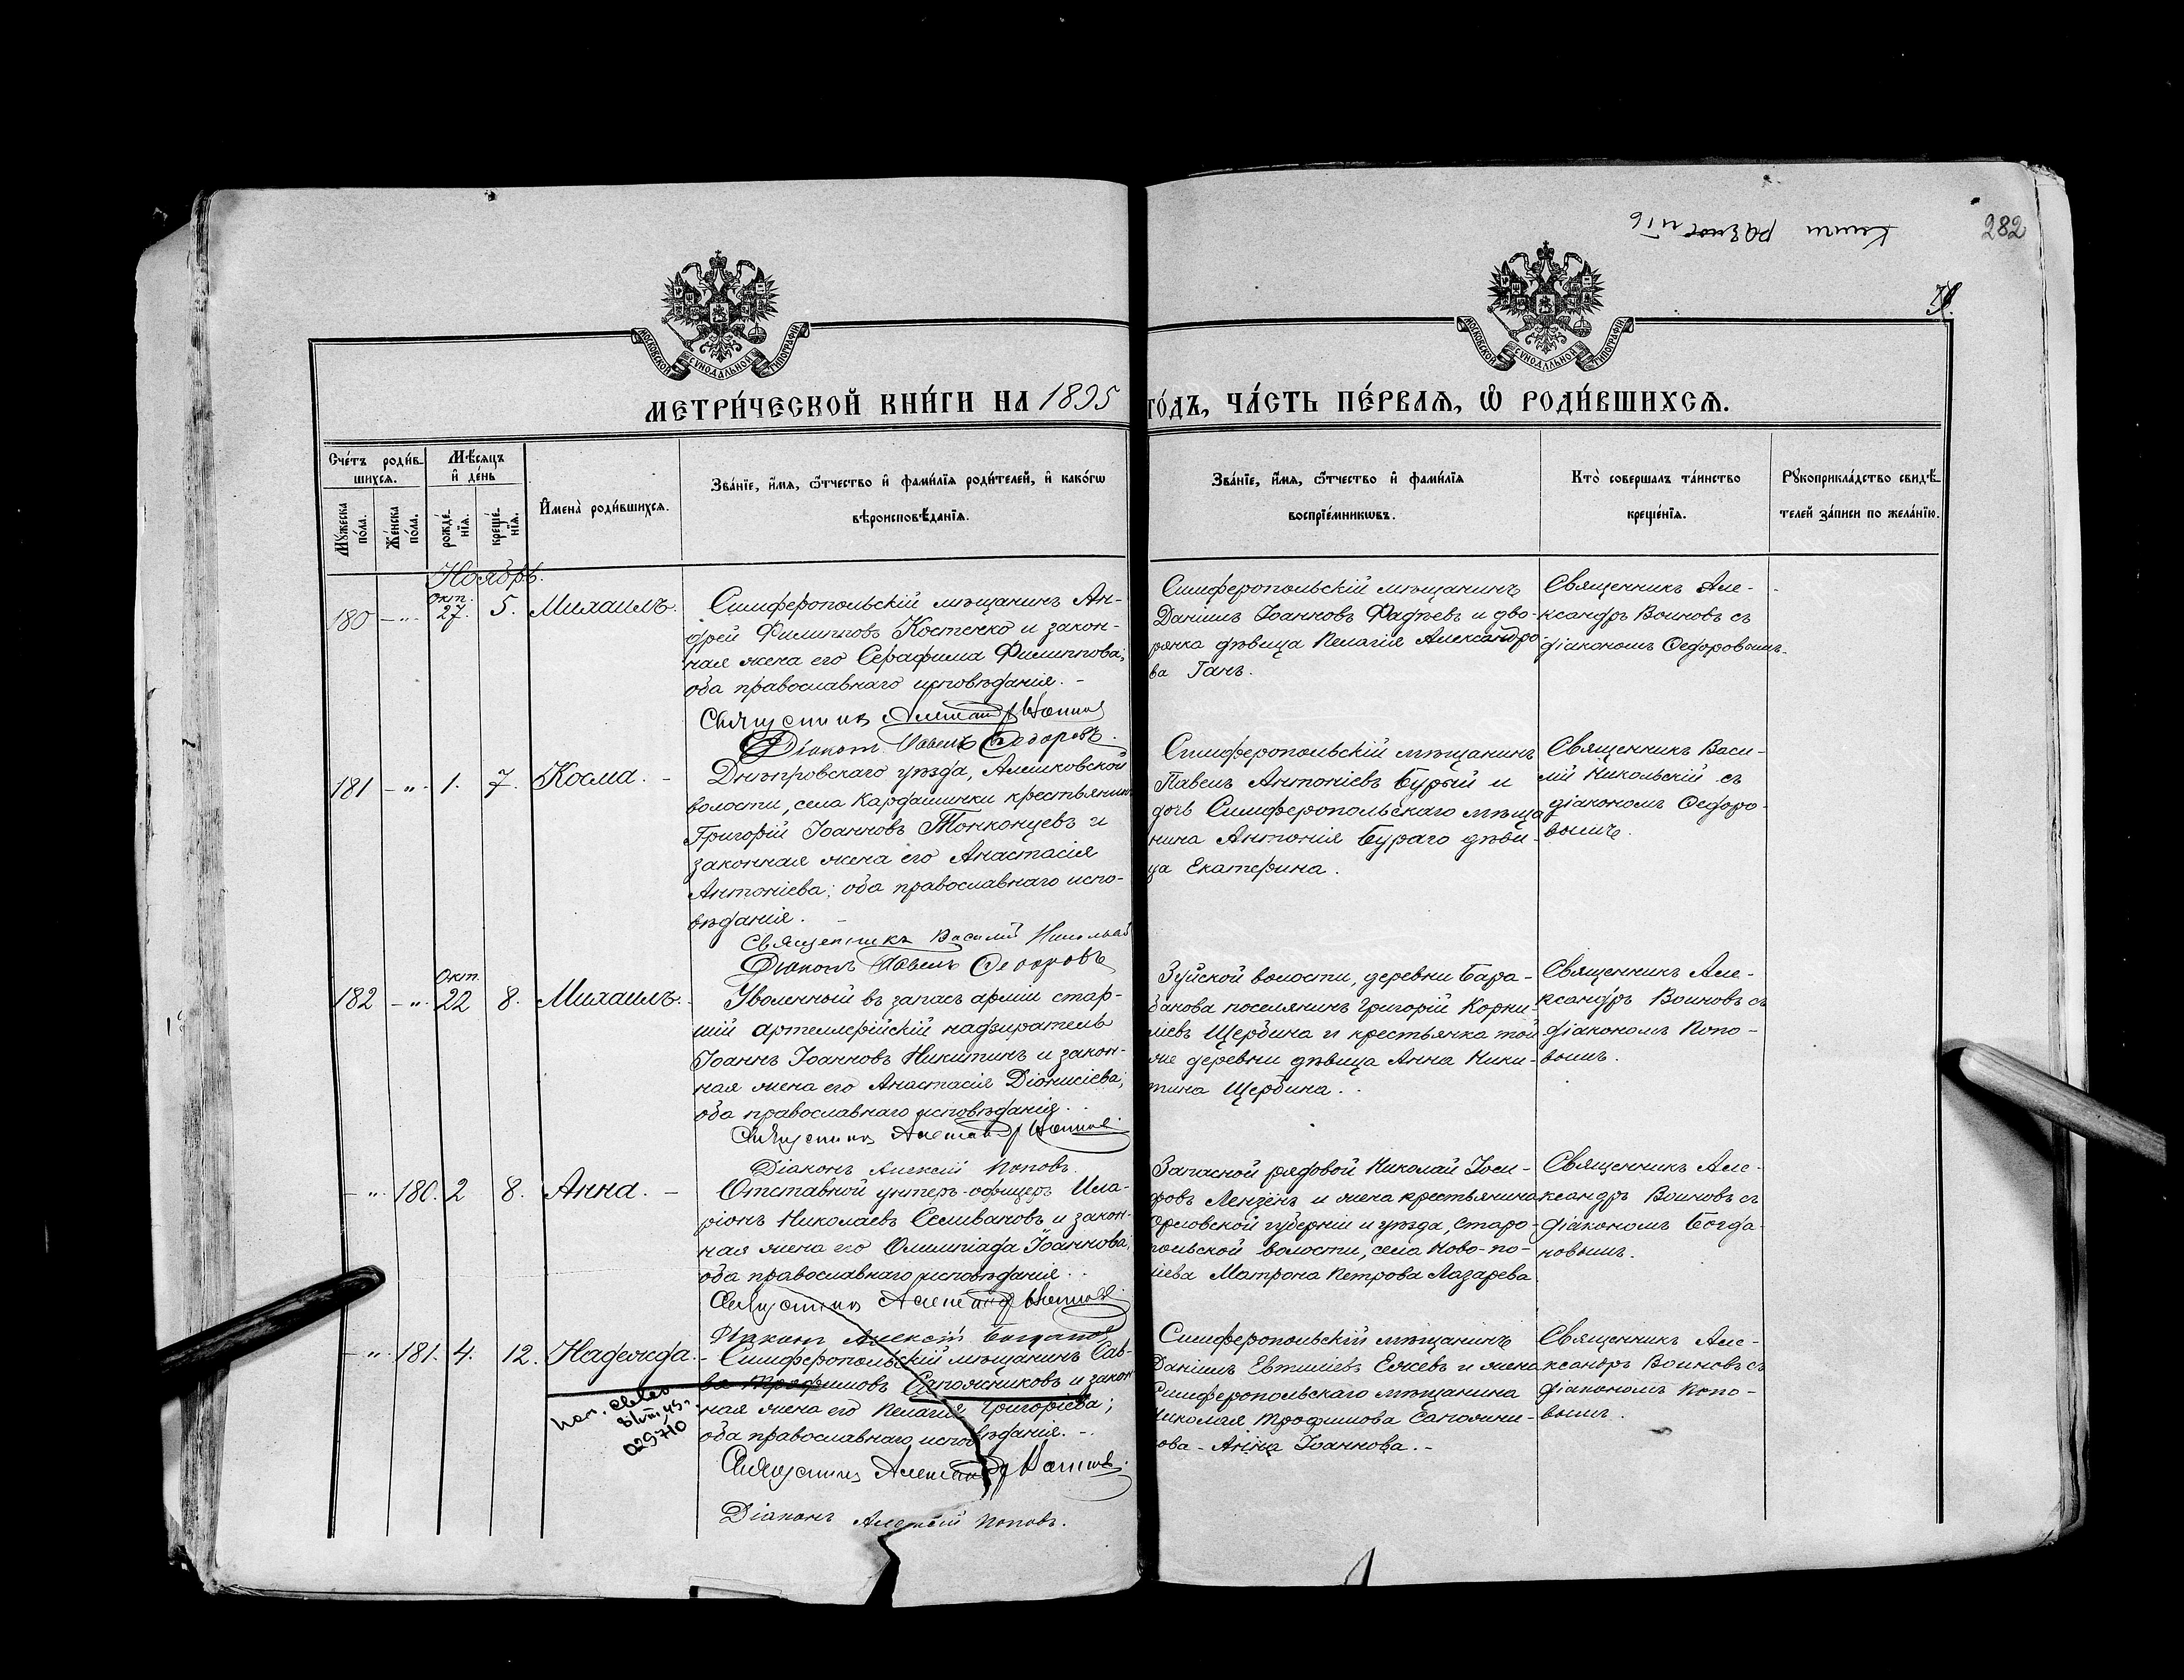 282
МОСКОВСКОЙ СѴНОДАЛЬНОЙ ТИПОГРАФІИ
МОСКОВСКОЙ СѴНОДАЛЬНОЙ ТИПОГРАФІИ
МЕТРИ́ЧЕСКОЙ КНИ́ГИ НА 1895 ГО́ДЪ, ЧА́СТЬ ПЕ́РВАѦ, Ѡ РОДИ́ВШИХСѦ.
Сче́тъ роди́в-
шихсѧ.
Мꙋ́жеска по́ла.
Же́нска по́ла.
Мѣ́сяцъ
и҆ де́нь
рожде́-
нїѧ.
креще́-
нїѧ.
И҆мена̀ роди́вшихсѧ.
Зва́нїе, и҆́мѧ, ѻ҆́тчество и҆ фами́лїѧ роди́телей, и҆ како́гѡ
вѣроисповѣ́данїѧ.
Зва́нїе, и҆́мѧ, ѻ҆́тчество и҆ фами́лїѧ
воспрїе́мникѡвъ.
Кто̀ соверша́лъ та́инство
креще́нїѧ.
Рꙋкоприкла́дство свидѣ́-
телей за́писи по жела́нїю.
Ноябрь.
180 - „ - Окт. 27. 5. Михаилъ.
Симферопольскій мѣщанинъ Ан-
дрей Филипповъ Костенко и закон-
ная жена его Серафима Филиппова;
оба православнаго исповѣданія. -
Священникъ Александръ Воиновъ
Діаконъ Павелъ Ѳедоровъ.
Симферопольскій мѣщанинъ
Даніилъ Іоанновъ Фадѣевъ и дво-
рянка дѣвица Пелагія Александро-
ва Ганъ.
Священникъ Але-
ксандръ Воиновъ съ
діакономъ Ѳедоровымъ.
181 - „ - 1. 7. Косма. -
Днѣпровскаго уѣзда, Алешковской
волости, села Кардашинки крестьянинъ
Григорій Іоанновъ Тонконцевъ и
законная жена его Анастасія
Антоніева; оба православнаго испо-
вѣданія. -
Священникъ Василій Никольскій
Діаконъ Павелъ Ѳедоровъ
Симферопольскій мѣщанинъ
Павелъ Антоніевъ Бурый и
дочь Симферопольскаго мѣща
нина Антонія Бураго дѣви-
ца Екатерина.
Священникъ Васи-
лій Никольскій съ
діакономъ Ѳедоро-
вымъ.
182 - „ - Окт. 22 8. Михаилъ.
Уволенный въ запасъ арміи стар-
шій артиллерійскій надзиратель
Іоаннъ Іоанновъ Никитинъ и закон-
ная жена его Анастасія Діонисіева;
оба православнаго исповѣданія.
Священникъ Александръ Воиновъ
Діаконъ Алексій Поповъ.
Зуйской волости, деревни Бара-
банова поселянинъ Григорій Корни-
ліевъ Щербина и крестьянка той
же деревни дѣвица Анна Ники-
тина Щербина.
Священникъ Але-
ксандръ Воиновъ съ
діакономъ Попо-
вымъ.
- „ - 180. 2 8. Анна. -
Отставной унтеръ-офицеръ Ила-
ріонъ Николаевъ Селивановъ и закон-
ная жена его Олимпіада Іоаннова;
оба православнаго исповѣданія.
Священникъ Александръ Воиновъ
Діаконъ Алексій Богдановъ
Запасной рядовой Николай Іоси-
фовъ Лензенъ и жена крестьянина
Орловской губерніи и уѣзда, Старо-
польской волости, села Ново-по-
лева Матрона Петрова Лазарева
Священникъ Але-
ксандръ Воиновъ съ
діакономъ Богда-
новымъ.
- „ - 181. 4. 12. Надежда. -
Симферопольскій мѣщанинъ Сав-
ва Трофимовъ Сапожниковъ и закон-
ная жена его Пелагія Григоріева;
оба православнаго исповѣданія. -
Священникъ Александръ Воиновъ
Діаконъ Алексій Поповъ.
029710
Симферопольскій мѣщанинъ
Даніилъ Евтихіевъ Ежевъ и жена
Симферопольскаго мѣщанина
Николая Трофимова Сапожни-
кова - Анна Іоаннова. -
Священникъ Але-
ксандръ Воиновъ съ
діакономъ Попо-
вымъ.